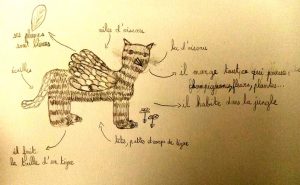 ses plumes
sont bleues
ailes d'oiseau
bec d'oiseau
écailles
il mange tout ce qui pousse :
champignons, fleurs, plantes...
il habite dans la jungle
il fait
la taille d'un tigre
tête, pattes et corps de tigre